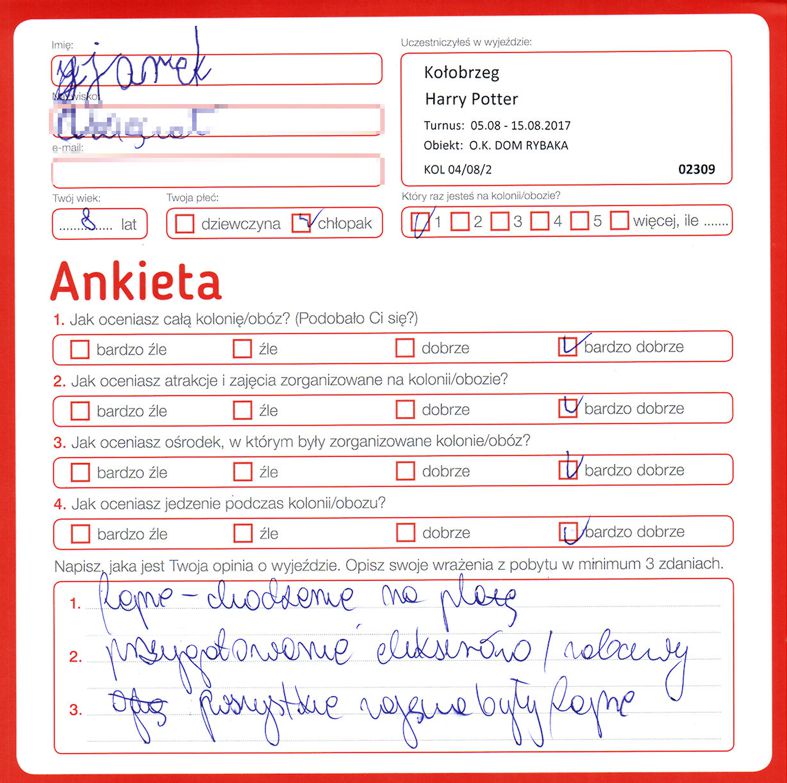 Imię:
jarek
Uczestniczyłeś w wyjeździe:
Kołobrzeg
Harry Potter
Turnus: 05.08 - 15.08.2017
Obiekt: O.K. DOM RYBAKA
KOL 04/08/2
02309
e-mail:
Twój wiek:
8 lat
Twoja płeć:
dziewczyna chłopak
Który raz jesteś na kolonii/obozie?
1 2 3 4 5 więcej, ile .......
Ankieta
1. Jak oceniasz całą kolonię/obóz? (Podobało Ci się?)
bardzo źle źle dobrze bardzo dobrze
2. Jak oceniasz atrakcje i zajęcia zorganizowane na kolonii/obozie?
bardzo źle źle dobrze bardzo dobrze
3. Jak oceniasz ośrodek, w którym były zorganizowane kolonie/obóz?
bardzo źle źle dobrze bardzo dobrze
4. Jak oceniasz jedzenie podczas kolonii/obozu?
bardzo źle źle dobrze bardzo dobrze
Napisz, jaka jest Twoja opinia o wyjeździe. Opisz swoje wrażenia z pobytu w minimum 3 zdaniach.
1. fajne - chodzenie na plażę
2. przygotowanie eliksirów /
3. były fajne